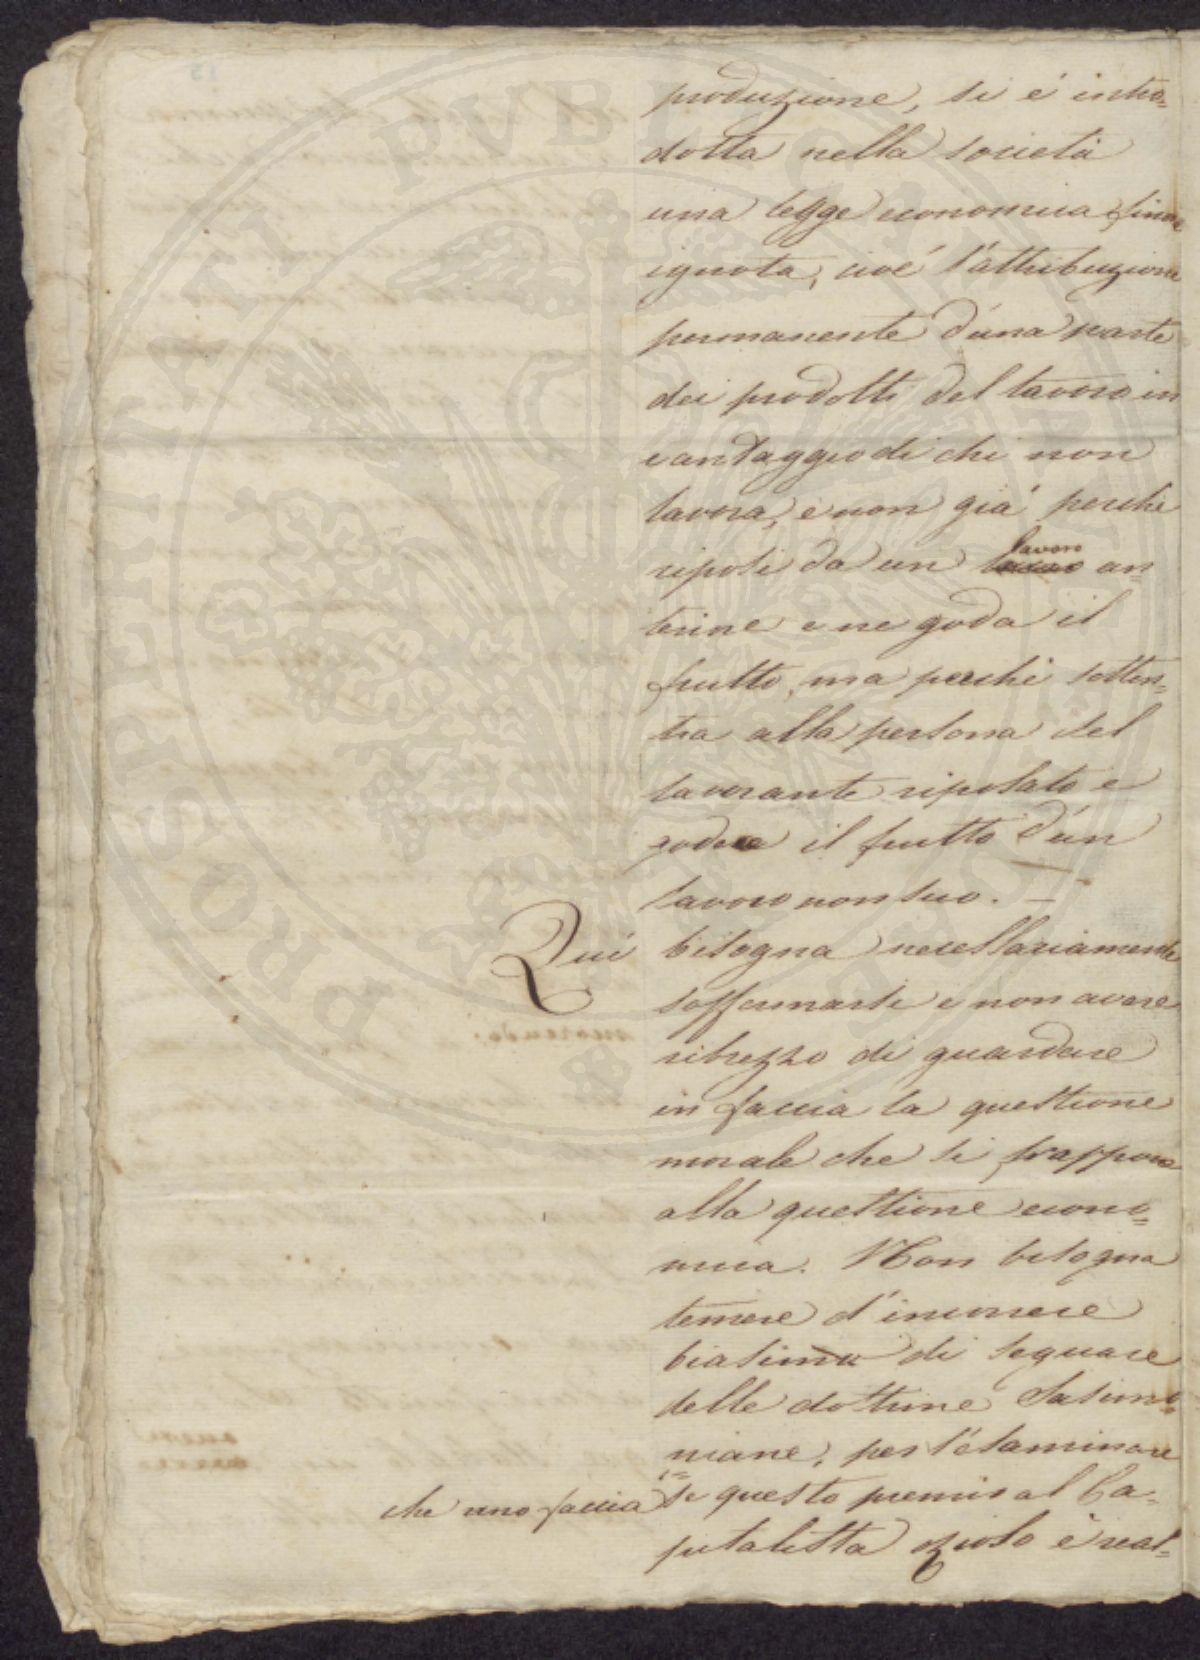 produzione, si é intro=
dotta nella società
una legge economica finora
ignota, cioé l'attribuzione
permanente d'una parte
dei prodotti del lavoro in
vantaggio di chi non
lavora, e non già perche
riposi da un lavoro an=
teriore e ne goda il
frutto, ma perché sotten=
tra alla persona del
lavorante riposato e
gode il frutto d'un
lavoro non suo. —
Qui bisogna necessariamente
soffermarsi e non avere
ribrezzo di guardare
in faccia la questione
morale che si frappone
alla questione econo=
mica. Non bisogna
temere d'incorrere
biasimo di seguace
delle dottrine Sansimo=
niane, per l'esaminare
che uno faccia se questo premio al Ca=
pitalista ozioso è real=
PROSPERITATI PVBLICAE